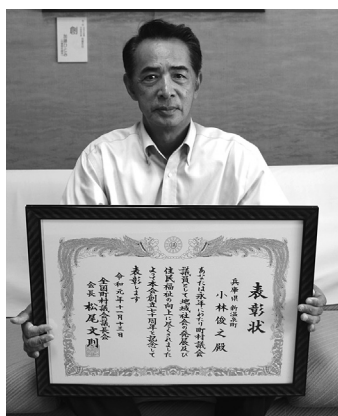 表彰状
兵庫県 新温泉町
小林俊之殿
あなたは永年にわたり町村議会
議員として地域社会の発展及び
住民福祉の向上に尽くされました
よって本会創立七十周年を記念して
表彰します
令和元年十一月十三日
全国町村議会議長会
会長 松尾文則